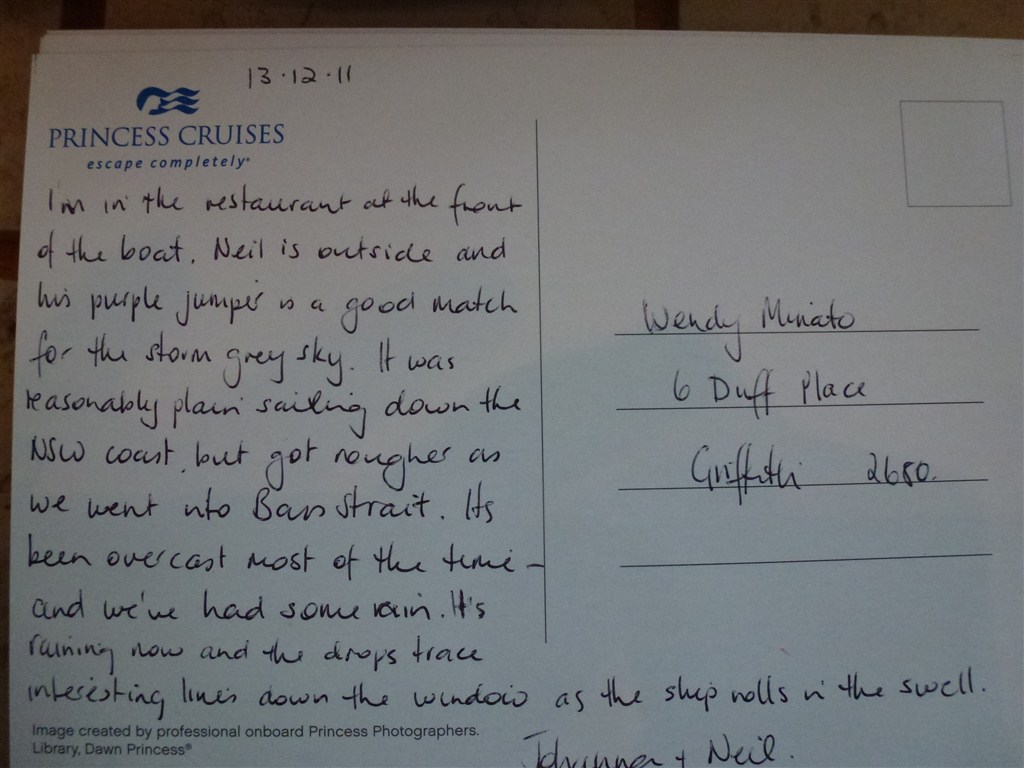 13.12.11
PRINCESS CRUISES
escape completely®
I'm in the restaurant at the front
of the boat. Neil is outside and
his purple jumper is a good match
for the storm grey sky. It was
reasonably plain sailing down the
NSW coast, but got rougher as
we went into Bass Strait. Its
been overcast most of the time –
and we've had some rain. It's
raining now and the drops trace
interesting lines down the window as the ship rolls in the swell.
Johanna + Neil.
Wendy Minato
6 Duff Place
Griffith 2680.
Image created by professional onboard Princess Photographers.
Library, Dawn Princess®